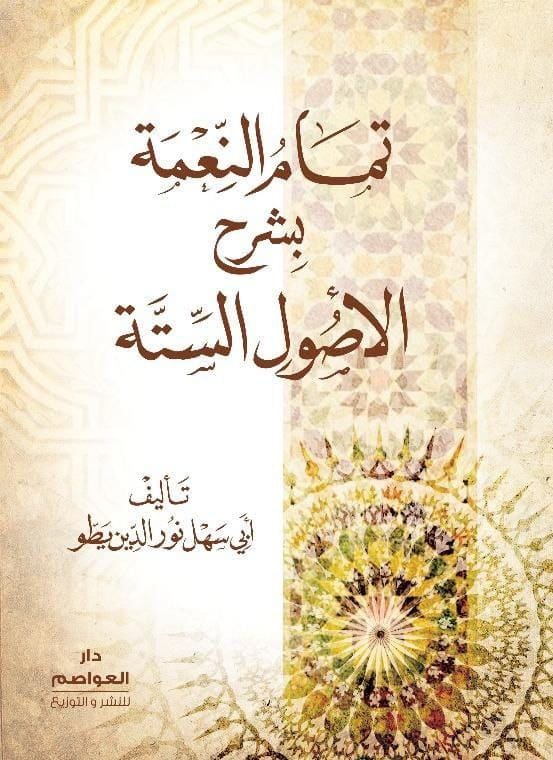 تمَامُ النِّعْمَة
بِشرح
الأصُولِ السِّتَّة
تَأليفْ
أَبي سَهْل نوُر الدِّين يَطَو
دار
العواصم
للنشر و التوزيع